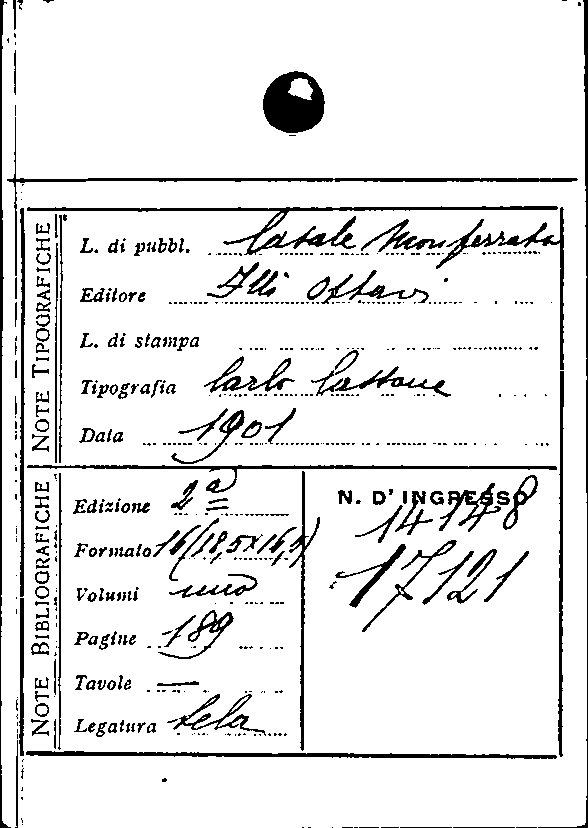 NOTE TIPOGRAFICHE
L. di pubbl. Casale Monferrato
Editore F.lli Ottavi
L. di stampa
Tipografia Carlo Cassone
Data 1901
NOTE BIBLIOGRAFICHE
Edizione 2ª
Formato 16 (18,5x16,5)
Volumi uno
Pagine 189
Tavole —
Legatura tela
N. D'INGRESSO
14148
17121